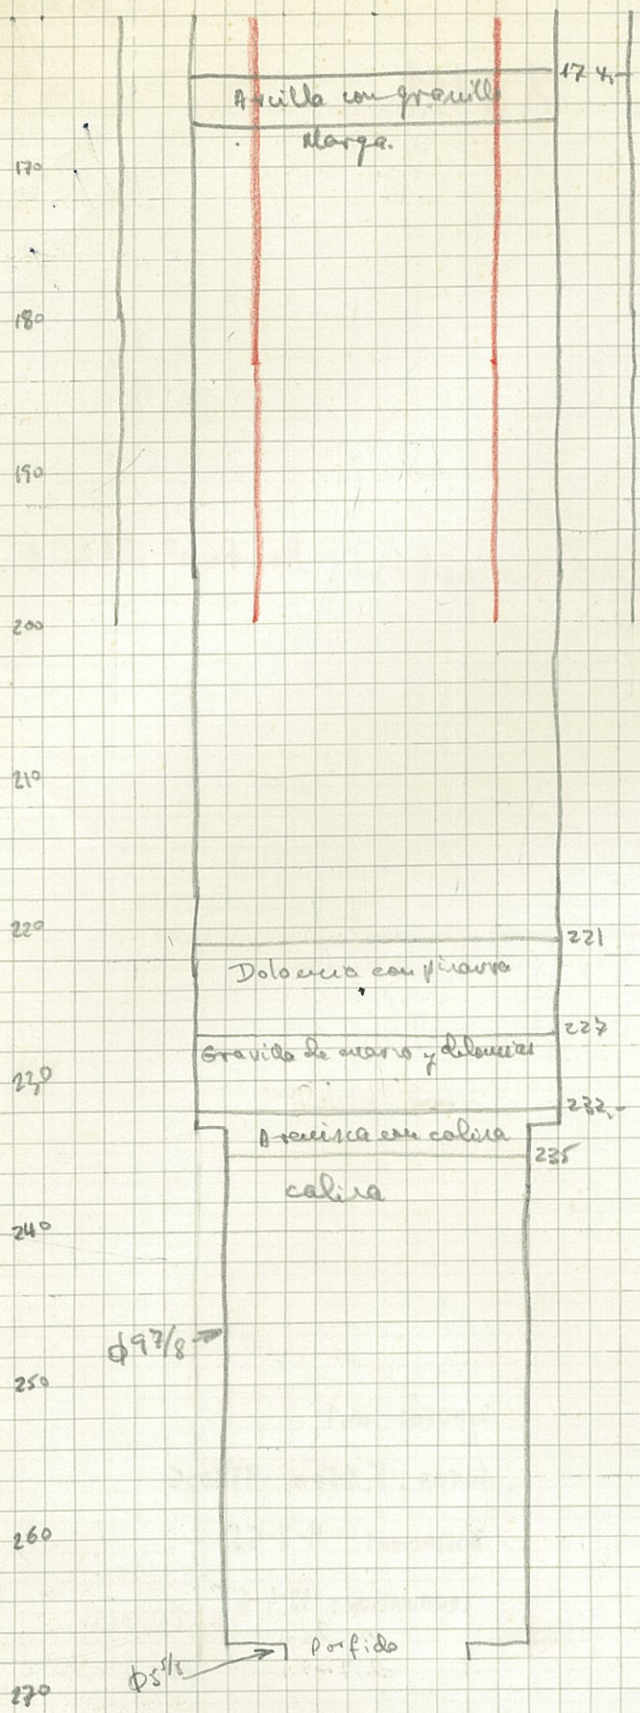 Arcilla con gravilla
Marga.
170
180
190
200
210
220
221
Dolomia con pizarra
227
Gravilla de cuarzo y dolomias
230
232,-
Arenisca con caliza
235
caliza
240
ϕ 9 7/8
250
260
Porfido
ϕ 5 5/8
270